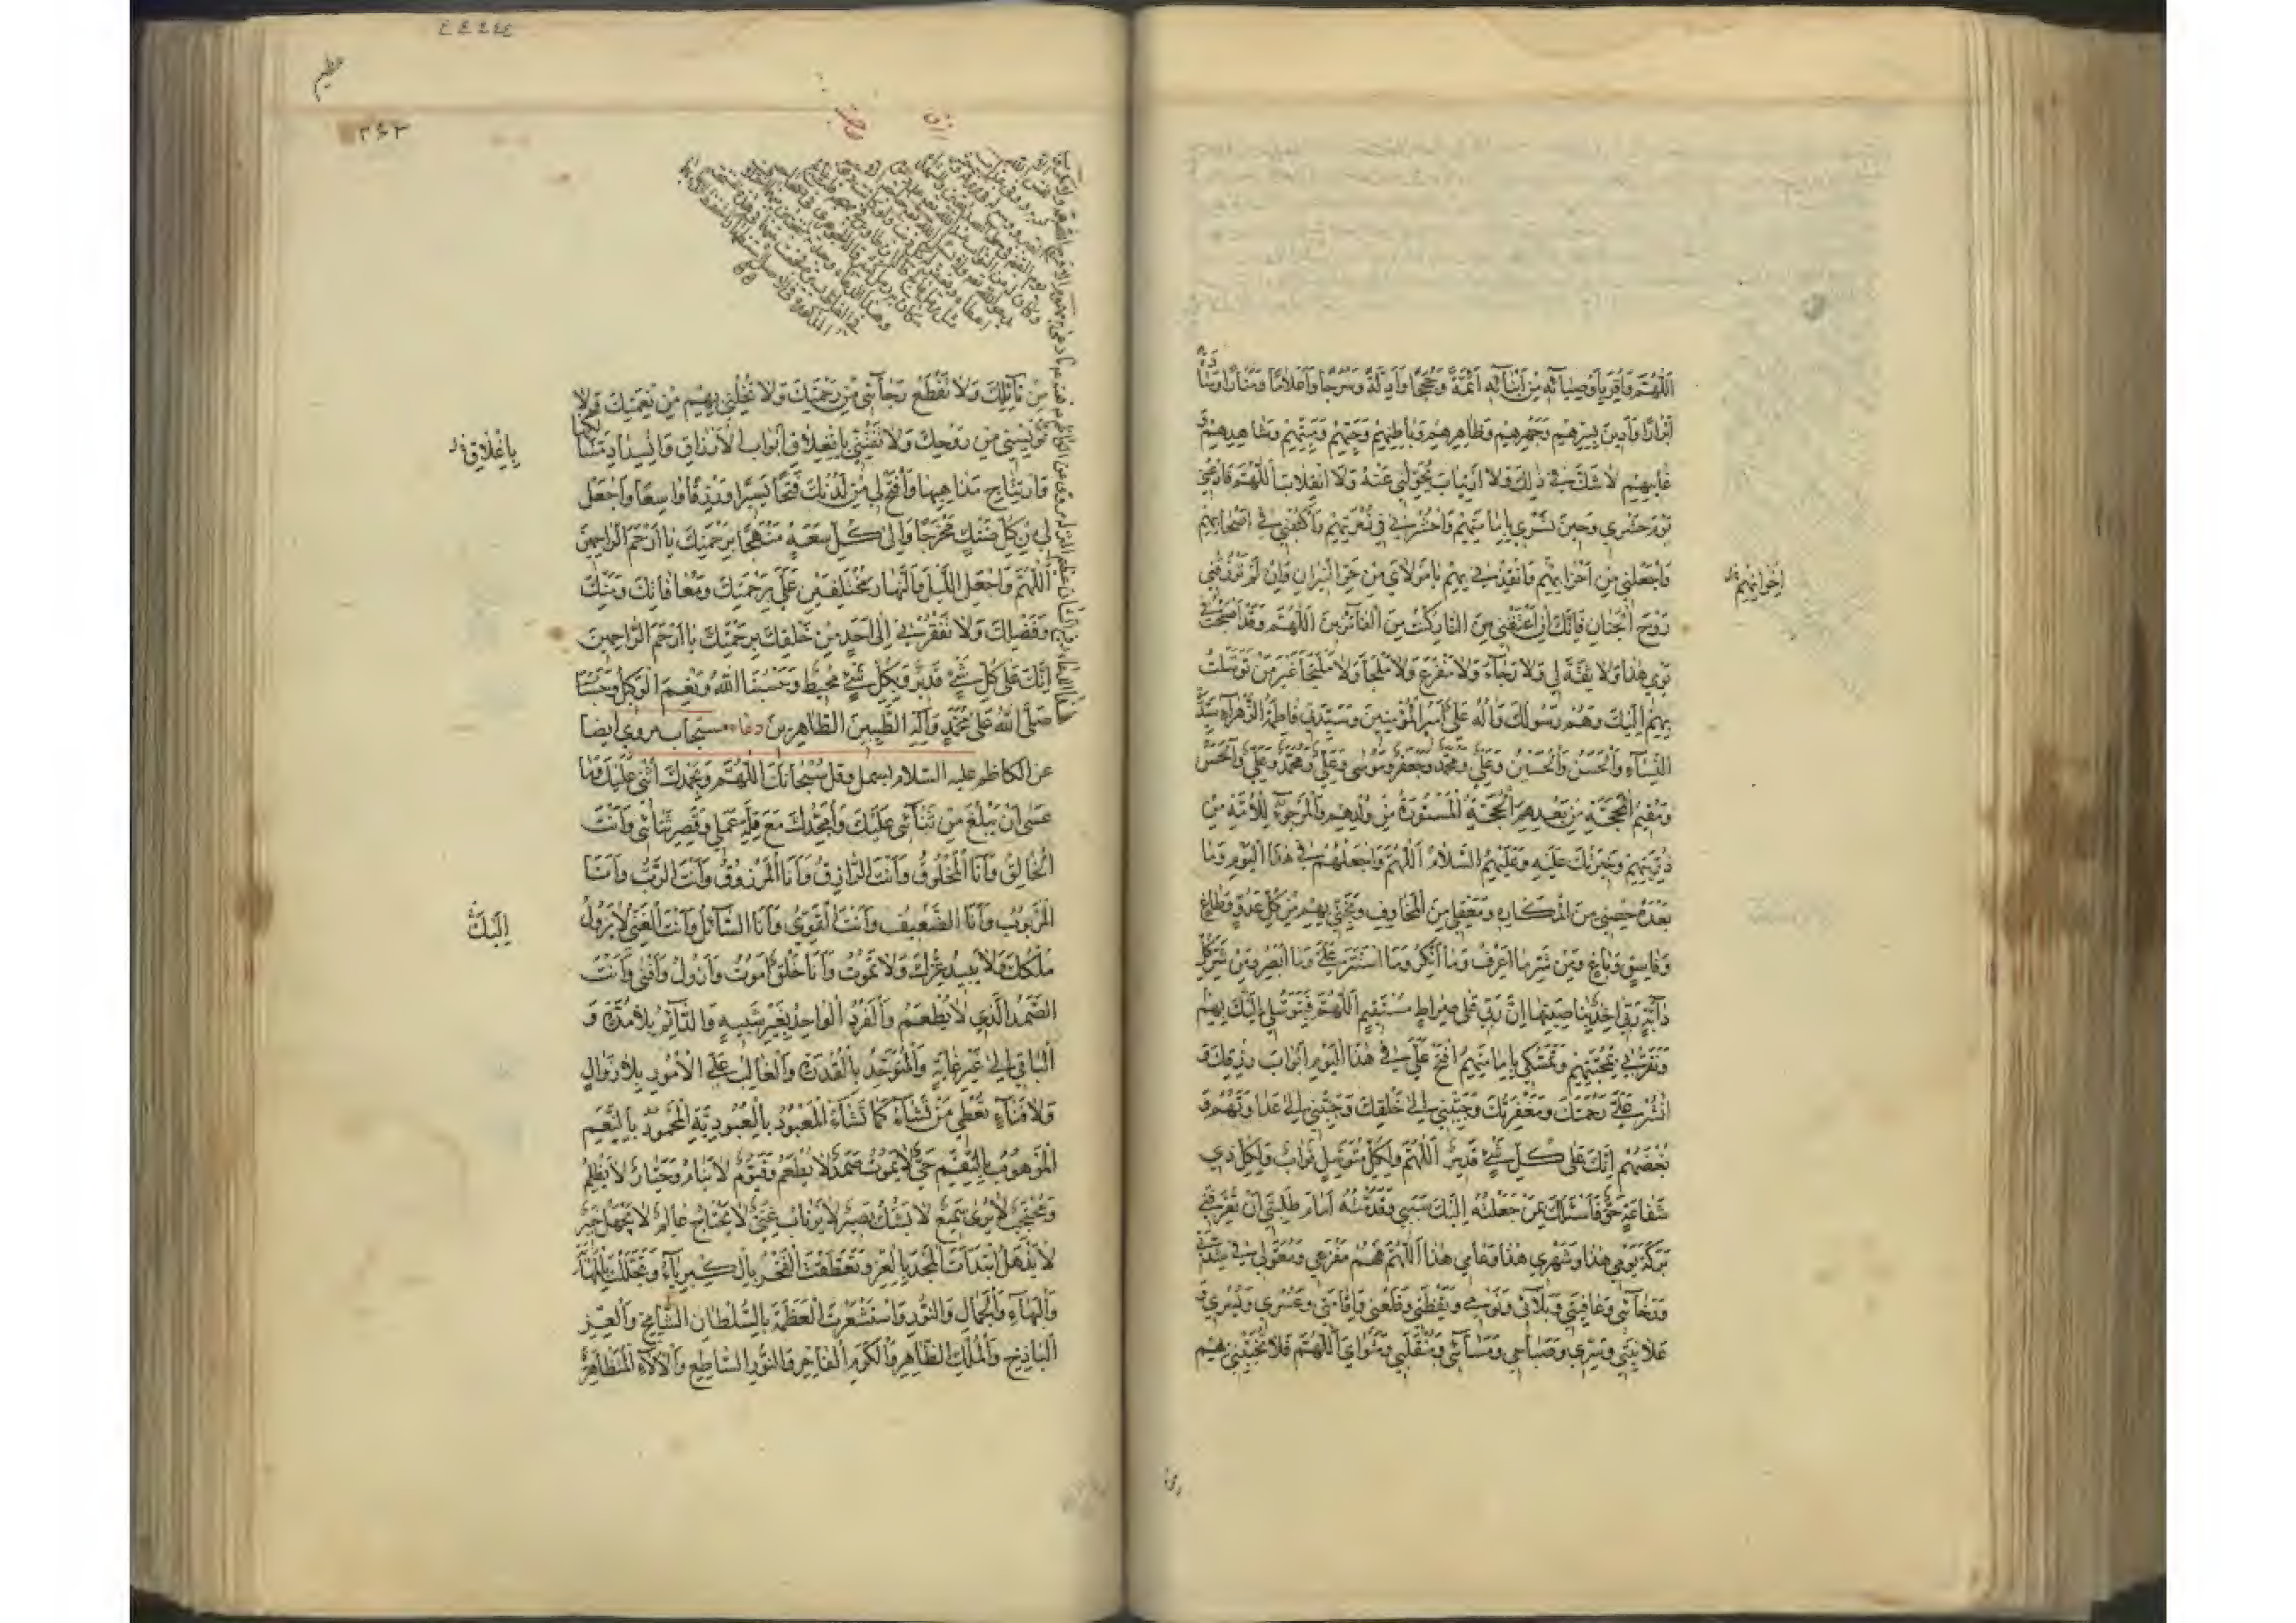 اَللّٰهُمَّ وَاُقِرُّ بِاَوْصِيَآئِهِ مِنْ اَبْنَآئِهِ اَئِمَّةً وَحُجَجًا وَاَدِلَّةً وَسُرُجًا وَاَعْلَامًا وَمَنَارًا وَسَادَةً
اَبْرَارًا وَاَدِينُ بِسِرِّهِمْ وَجَهْرِهِمْ وَظَاهِرِهِمْ وَبَاطِنِهِمْ وَحَيِّهِمْ وَمَيِّتِهِمْ وَشَاهِدِهِمْ وَ
غَائِبِهِمْ لَا شَكَّ فِي ذٰلِكَ وَلَا ارْتِيَابَ وَلَا تَحَوُّلَ عَنْهُ وَلَا انْقِلَابَ اَللّٰهُمَّ فَادْعُنِي
يَوْمَ حَشْرِي وَحِينَ نَشْرِي بِاِمَامَتِهِمْ وَاحْشُرْنِي فِي زُمْرَتِهِمْ وَاكْتُبْنِي فِي اَصْحَابِهِمْ
وَاجْعَلْنِي مِنْ اَحْزَابِهِمْ وَاَنْقِذْنِي بِهِمْ يَا مَوْلَايَ مِنْ حَرِّ النِّيرَانِ وَاِنْ لَمْ تَرْزُقْنِي
اِخْوَانِهِمْ
رَوْحَ الْجِنَانِ فَاِنَّكَ اِنْ اَعْتَقْتَنِي مِنَ النَّارِ كُنْتُ مِنَ الْفَائِزِينَ اَللّٰهُمَّ وَقَدْ اَصْبَحْتُ فِي
يَوْمِي هٰذَا وَلَا ثِقَةَ لِي وَلَا رَجَاءَ وَلَا مَفْزَعَ وَلَا مَلْجَأَ وَلَا مُلْتَجَأَ غَيْرَ مَنْ تَوَسَّلْتُ
بِهِمْ اِلَيْكَ وَهُمْ رَسُولُكَ وَآلُهُ عَلِيٌّ اَمِيرُ الْمُؤْمِنِينَ وَسَيِّدَتِي فَاطِمَةُ الزَّهْرَاءُ سَيِّدَةُ
النِّسَاءِ وَالْحَسَنُ وَالْحُسَيْنُ وَعَلِيٌّ وَمُحَمَّدٌ وَجَعْفَرٌ وَمُوسَى وَعَلِيٌّ وَمُحَمَّدٌ وَعَلِيٌّ وَالْحَسَنُ
وَمُقِيمُ الْمَحَجَّةِ مِنْ بَعْدِهِمُ الْحُجَّةُ الْمَسْتُورَةُ مِنْ وُلْدِهِمْ وَالْمَرْجُوُّ لِلْاُمَّةِ مِنْ
ذُرِّيَّتِهِمْ وَخِيَرَتُكَ عَلَيْهِ وَعَلَيْهِمُ السَّلَامُ اَللّٰهُمَّ وَاجْعَلْهُمْ فِي هٰذَا الْيَوْمِ وَمَا
بَعْدَهُ حِصْنِي مِنَ الْمَكَارِهِ وَمَعْقِلِي مِنَ الْمَخَاوِفِ وَنَجِّنِي بِهِمْ مِنْ كُلِّ عَدُوٍّ وَطَاغٍ
وَفَاسِقٍ وَبَاغٍ وَمِنْ شَرِّ مَا اَعْرِفُ وَمَا اُنْكِرُ وَمَا اسْتَتَرَ عَلَيَّ وَمَا اُبْصِرُ وَمِنْ شَرِّ كُلِّ
دَآبَّةٍ رَبِّي آخِذٌ بِنَاصِيَتِهَا اِنَّ رَبِّي عَلَى صِرَاطٍ مُسْتَقِيمٍ اَللّٰهُمَّ فَبِتَوَسُّلِي اِلَيْكَ بِهِمْ
وَتَقَرُّبِي بِمَحَبَّتِهِمْ وَتَمَسُّكِي بِاِمَامَتِهِمْ افْتَحْ عَلَيَّ فِي هٰذَا الْيَوْمِ اَبْوَابَ رِزْقِكَ وَ
انْشُرْ عَلَيَّ رَحْمَتَكَ وَمَغْفِرَتَكَ وَحَبِّبْنِي اِلَى خَلْقِكَ وَجَنِّبْنِي عَدَاوَتَهُمْ وَ
بُغْضَهُمْ اِنَّكَ عَلَى كُلِّ شَيْءٍ قَدِيرٌ اَللّٰهُمَّ وَلِكُلِّ مُتَوَسِّلٍ ثَوَابٌ وَلِكُلِّ ذِي
شَفَاعَةٍ حَقٌّ فَاَسْئَلُكَ بِمَنْ جَعَلْتُهُ اِلَيْكَ سَبَبِي وَقَدَّمْتُهُ اَمَامَ طَلِبَتِي اَنْ تُعَرِّفَنِي
بَرَكَةَ يَوْمِي هٰذَا وَشَهْرِي هٰذَا وَعَامِي هٰذَا اَللّٰهُمَّ فَهُمْ مَفْزَعِي وَمَعُونَتِي فِي شِدَّتِي
وَرَخَآئِي وَعَافِيَتِي وَبَلَآئِي وَنَوْمِي وَيَقْظَتِي وَظَعْنِي وَاِقَامَتِي وَعُسْرِي وَيُسْرِي وَ
عَلَانِيَتِي وَسِرِّي وَصَبَاحِي وَمَسَآئِي وَمُنْقَلَبِي وَمَثْوَايَ اَللّٰهُمَّ فَلَا تُخَيِّبْنِي بِهِمْ
٤٤٢٤٤
٣٤٣
مِنْ نَآئِلِكَ وَلَا تَقْطَعْ رَجَآئِي مِنْ رَحْمَتِكَ وَلَا تُخْلِنِي بِهِمْ مِنْ نِعْمَتِكَ وَلَا
تُؤْيِسْنِي مِنْ رَوْحِكَ وَلَا تَفْتِنِّي بِانْغِلَاقِ اَبْوَابِ الْاَرْزَاقِ وَانْسِدَادِ مَسَالِكِهَا
بِاِغْلَاقِ
وَارْتِتَاجِ مَذَاهِبِهَا وَافْتَحْ لِي مِنْ لَدُنْكَ فَتْحًا يَسِيرًا وَرِزْقًا وَاسِعًا وَاجْعَلْ
لِي مِنْ كُلِّ ضَنْكٍ مَخْرَجًا وَاِلَى كُلِّ سَعَةٍ مَنْهَجًا بِرَحْمَتِكَ يَا اَرْحَمَ الرَّاحِمِينَ
اَللّٰهُمَّ وَاجْعَلِ اللَّيْلَ وَالنَّهَارَ مُخْتَلِفَيْنِ عَلَيَّ بِرَحْمَتِكَ وَمُعَافَاتِكَ وَمَنِّكَ
وَفَضْلِكَ وَلَا تُفْقِرْنِي اِلَى اَحَدٍ مِنْ خَلْقِكَ بِرَحْمَتِكَ يَا اَرْحَمَ الرَّاحِمِينَ
اِنَّكَ عَلَى كُلِّ شَيْءٍ قَدِيرٌ وَبِكُلِّ شَيْءٍ مُحِيطٌ وَحَسْبُنَا اللّٰهُ وَنِعْمَ الْوَكِيلُ وَحَسْبُنَا
صَلَّى اللّٰهُ عَلَى مُحَمَّدٍ وَآلِهِ الطَّيِّبِينَ الطَّاهِرِينَ دعاء مستجاب مروي ايضا
عن الكاظم عليه السلام بسمل وقل سُبْحَانَكَ اَللّٰهُمَّ وَبِحَمْدِكَ اُثْنِي عَلَيْكَ وَمَا
عَسَى اَنْ يَبْلُغَ مِنْ ثَنَآئِي عَلَيْكَ وَاُمَجِّدُكَ مَعَ قِلَّةِ عَمَلِي وَقِصَرِ ثَنَائِي وَاَنْتَ
الْخَالِقُ وَاَنَا الْمَخْلُوقُ وَاَنْتَ الرَّازِقُ وَاَنَا الْمَرْزُوقُ وَاَنْتَ الرَّبُّ وَاَنَا
الْمَرْبُوبُ وَاَنَا الضَّعِيفُ وَاَنْتَ الْقَوِيُّ وَاَنَا السَّآئِلُ وَاَنْتَ الْغَنِيُّ لَا يَزُولُ
اِلَيْكَ
مُلْكُكَ وَلَا يَبِيدُ عِزُّكَ وَلَا تَمُوتُ وَاَنَا خَلْقٌ اَمُوتُ وَاَزُولُ وَاَفْنَى وَاَنْتَ
الصَّمَدُ الَّذِي لَا يُطْعَمُ وَالْفَرْدُ الْوَاحِدُ بِغَيْرِ شَبِيهٍ وَالدَّآئِمُ بِلَا مُدَّةٍ وَ
الْبَاقِي اِلَى غَيْرِ غَايَةٍ وَالْمُتَوَحِّدُ بِالْقُدْرَةِ وَالْغَالِبُ عَلَى الْاُمُورِ بِلَا زَوَالٍ
وَلَا فَنَآءٍ تُعْطِي مَنْ تَشَآءُ كَمَا تَشَآءُ الْمَعْبُودُ بِالْعُبُودِيَّةِ الْمَحْمُودُ بِالنِّعَمِ
الْمَرْهُوبُ بِالنِّقَمِ حَيٌّ لَا يَمُوتُ صَمَدٌ لَا يُطْعَمُ وَقَيُّومٌ لَا يَنَامُ وَجَبَّارٌ لَا يَظْلِمُ
وَمُحْتَجِبٌ لَا يُرَى سَمِيعٌ لَا يَشُكُّ بَصِيرٌ لَا يَرْتَابُ غَنِيٌّ لَا يَحْتَاجُ عَالِمٌ لَا يَجْهَلُ خَبِيرٌ
لَا يَذْهَلُ ابْتَدَأْتَ الْمَجْدَ بِالْعِزِّ وَتَعَطَّفْتَ الْفَخْرَ بِالْكِبْرِيَآءِ وَتَجَلَّلْتَ بِالْمَهَابَةِ
وَالْبَهَآءِ وَالْجَمَالِ وَالنُّورِ وَاسْتَشْعَرْتَ الْعَظَمَةَ بِالسُّلْطَانِ الشَّامِخِ وَالْعِزِّ
الْبَاذِخِ وَالْمُلْكِ الظَّاهِرِ وَالْكَرَمِ الْفَاخِرِ وَالنُّورِ السَّاطِعِ وَالْآلَاءِ الْمُتَظَاهِرَةِ